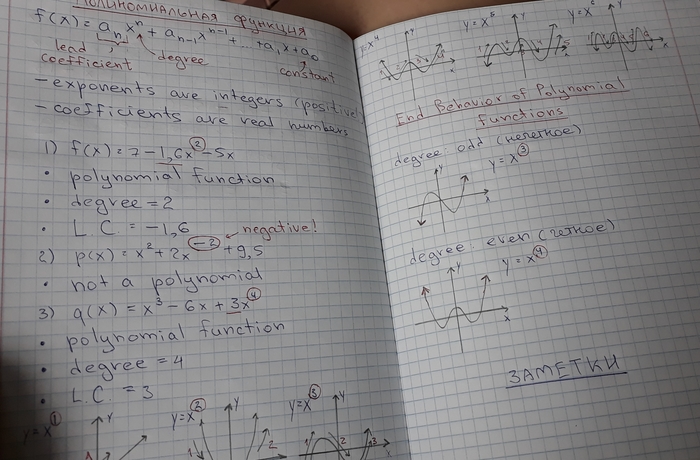 ПОЛИНОМИАЛЬНАЯ ФУНКЦИЯ
f(x) = aₙxⁿ + aₙ₋₁xⁿ⁻¹ + ... + a₁x + a₀
lead coefficient
degree
constant
- exponents are integers (positive)
- coefficients are real numbers
1) f(x) = 7 - 1,6x² - 5x
• polynomial function
• degree = 2
• L.C. = -1,6
negative!
2) p(x) = x² + 2x⁻² + 9,5
• not a polynomial
3) q(x) = x³ - 6x + 3x⁴
• polynomial function
• degree = 4
• L.C. = 3
y = x¹
y
y = x²
y
1
2
y = x³
y
1
2
3
x
y = x⁴
y
x
y = x⁵
y
x
y
x
End Behavior of Polynomial
functions
degree: odd (нечетное)
y = x³
y
x
degree: even (четное)
y = x⁴
y
x
ЗАМЕТКИ